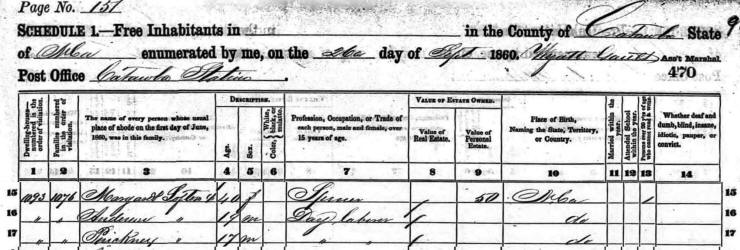 Page No. 151
SCHEDULE 1.—Free Inhabitants in in the County of Catawba State 9
of N Ca enumerated by me, on the 26 day of Sept 1860. Wyatt Ass't Marshal
Post Office Catawba Station. 470
DESCRIPTION. VALUE OF ESTATE OWNED.
Dwelling-house—numbered in the order of visitation. Families numbered in the order of visitation. The name of every person whose usual place of abode on the first day of June, 1860, was in this family. Age. Sex. Color, White, black, or mulatto. Profession, Occupation, or Trade of each person, male and female, over 15 years of age. Value of Real Estate. Value of Personal Estate. Place of Birth, Naming the State, Territory, or Country. Married within the year. Attended School within the year. Whether deaf and dumb, blind, insane, idiotic, pauper, or convict.
1 2 3 4 5 6 7 8 9 10 11 12 13 14
15 1093 1076 Margaret Lofton 40 f Spinner 50 N Ca 1 15
16 " " Andrew " 19 m Day laborer do 16
17 " " Pinckney " 17 m " " do 17